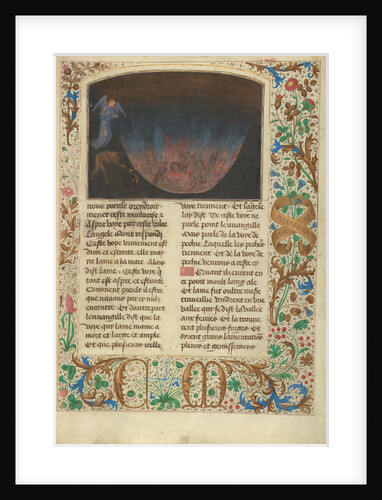 nous poeule orendroit
mener ceste maulvaise &
aspre voye par ceste valee
Langele dont respondi
Ceste voye vraiement est
dive et estroite elle may
ne lame a la mort Alors
dist lame Ceste voye q
tant est aspre et estroite
Comment poeult il estre
que nauons par cy nulz
encontre Et dautrepart
leuuangille dist que la
voye qui lame maine a
mort et large et ample
Et que plusieurs icelle
voye tiennent Et langele
luy dist De ceste voye ne
parle point leuuangille
Mais parle de la voye de
pechie Laquelle les pechers
tiennent et de la voye de
pechie venions a ceste cy
Quant ilz eurent en
ce point moult long ale
Et lame fut oultre mesre
trauillie vindrent en vne
vallee qui se dist la valee
aux feures Et la trouue
rent plusieurs forges Et
oirent grans lamentations
pleurs et gemissemens